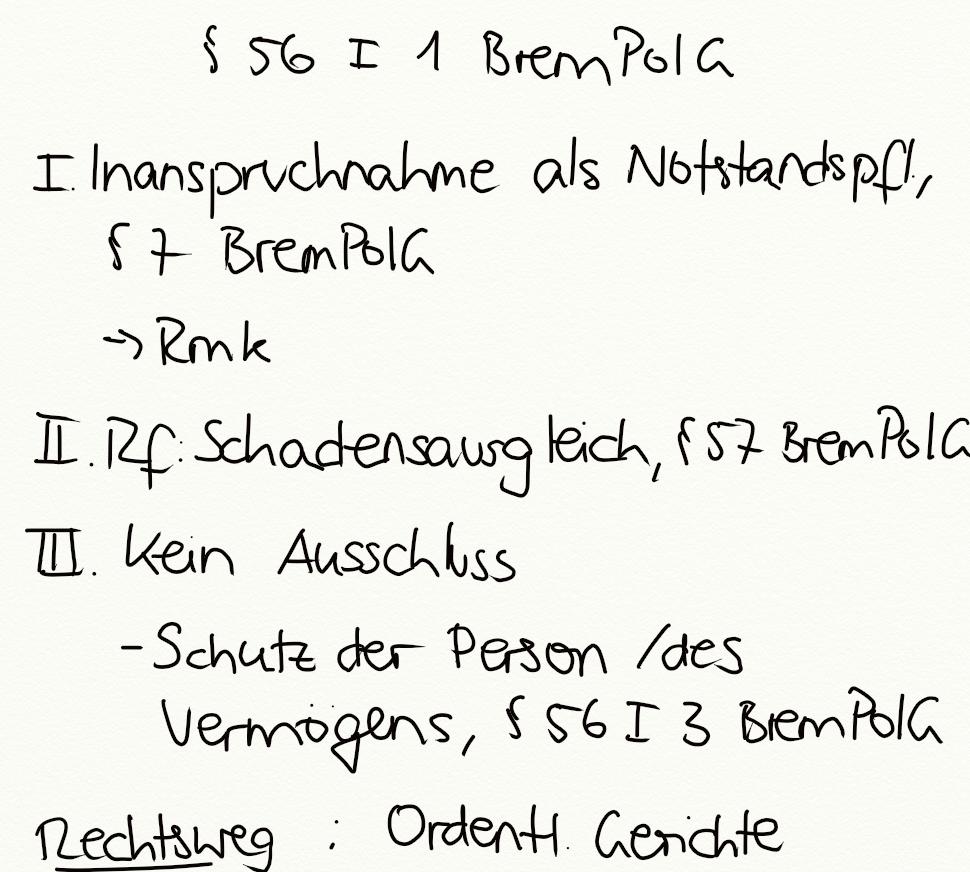 § 56 I 1 BremPolG
I. Inanspruchnahme als Notstandspfl.,
§ 7 BremPolG
→ Rmk
II. Rf: Schadensausgleich, § 57 BremPolG
III. Kein Ausschluss
- Schutz der Person / des
Vermögens, § 56 I 3 BremPolG
Rechtsweg : Ordentl. Gerichte